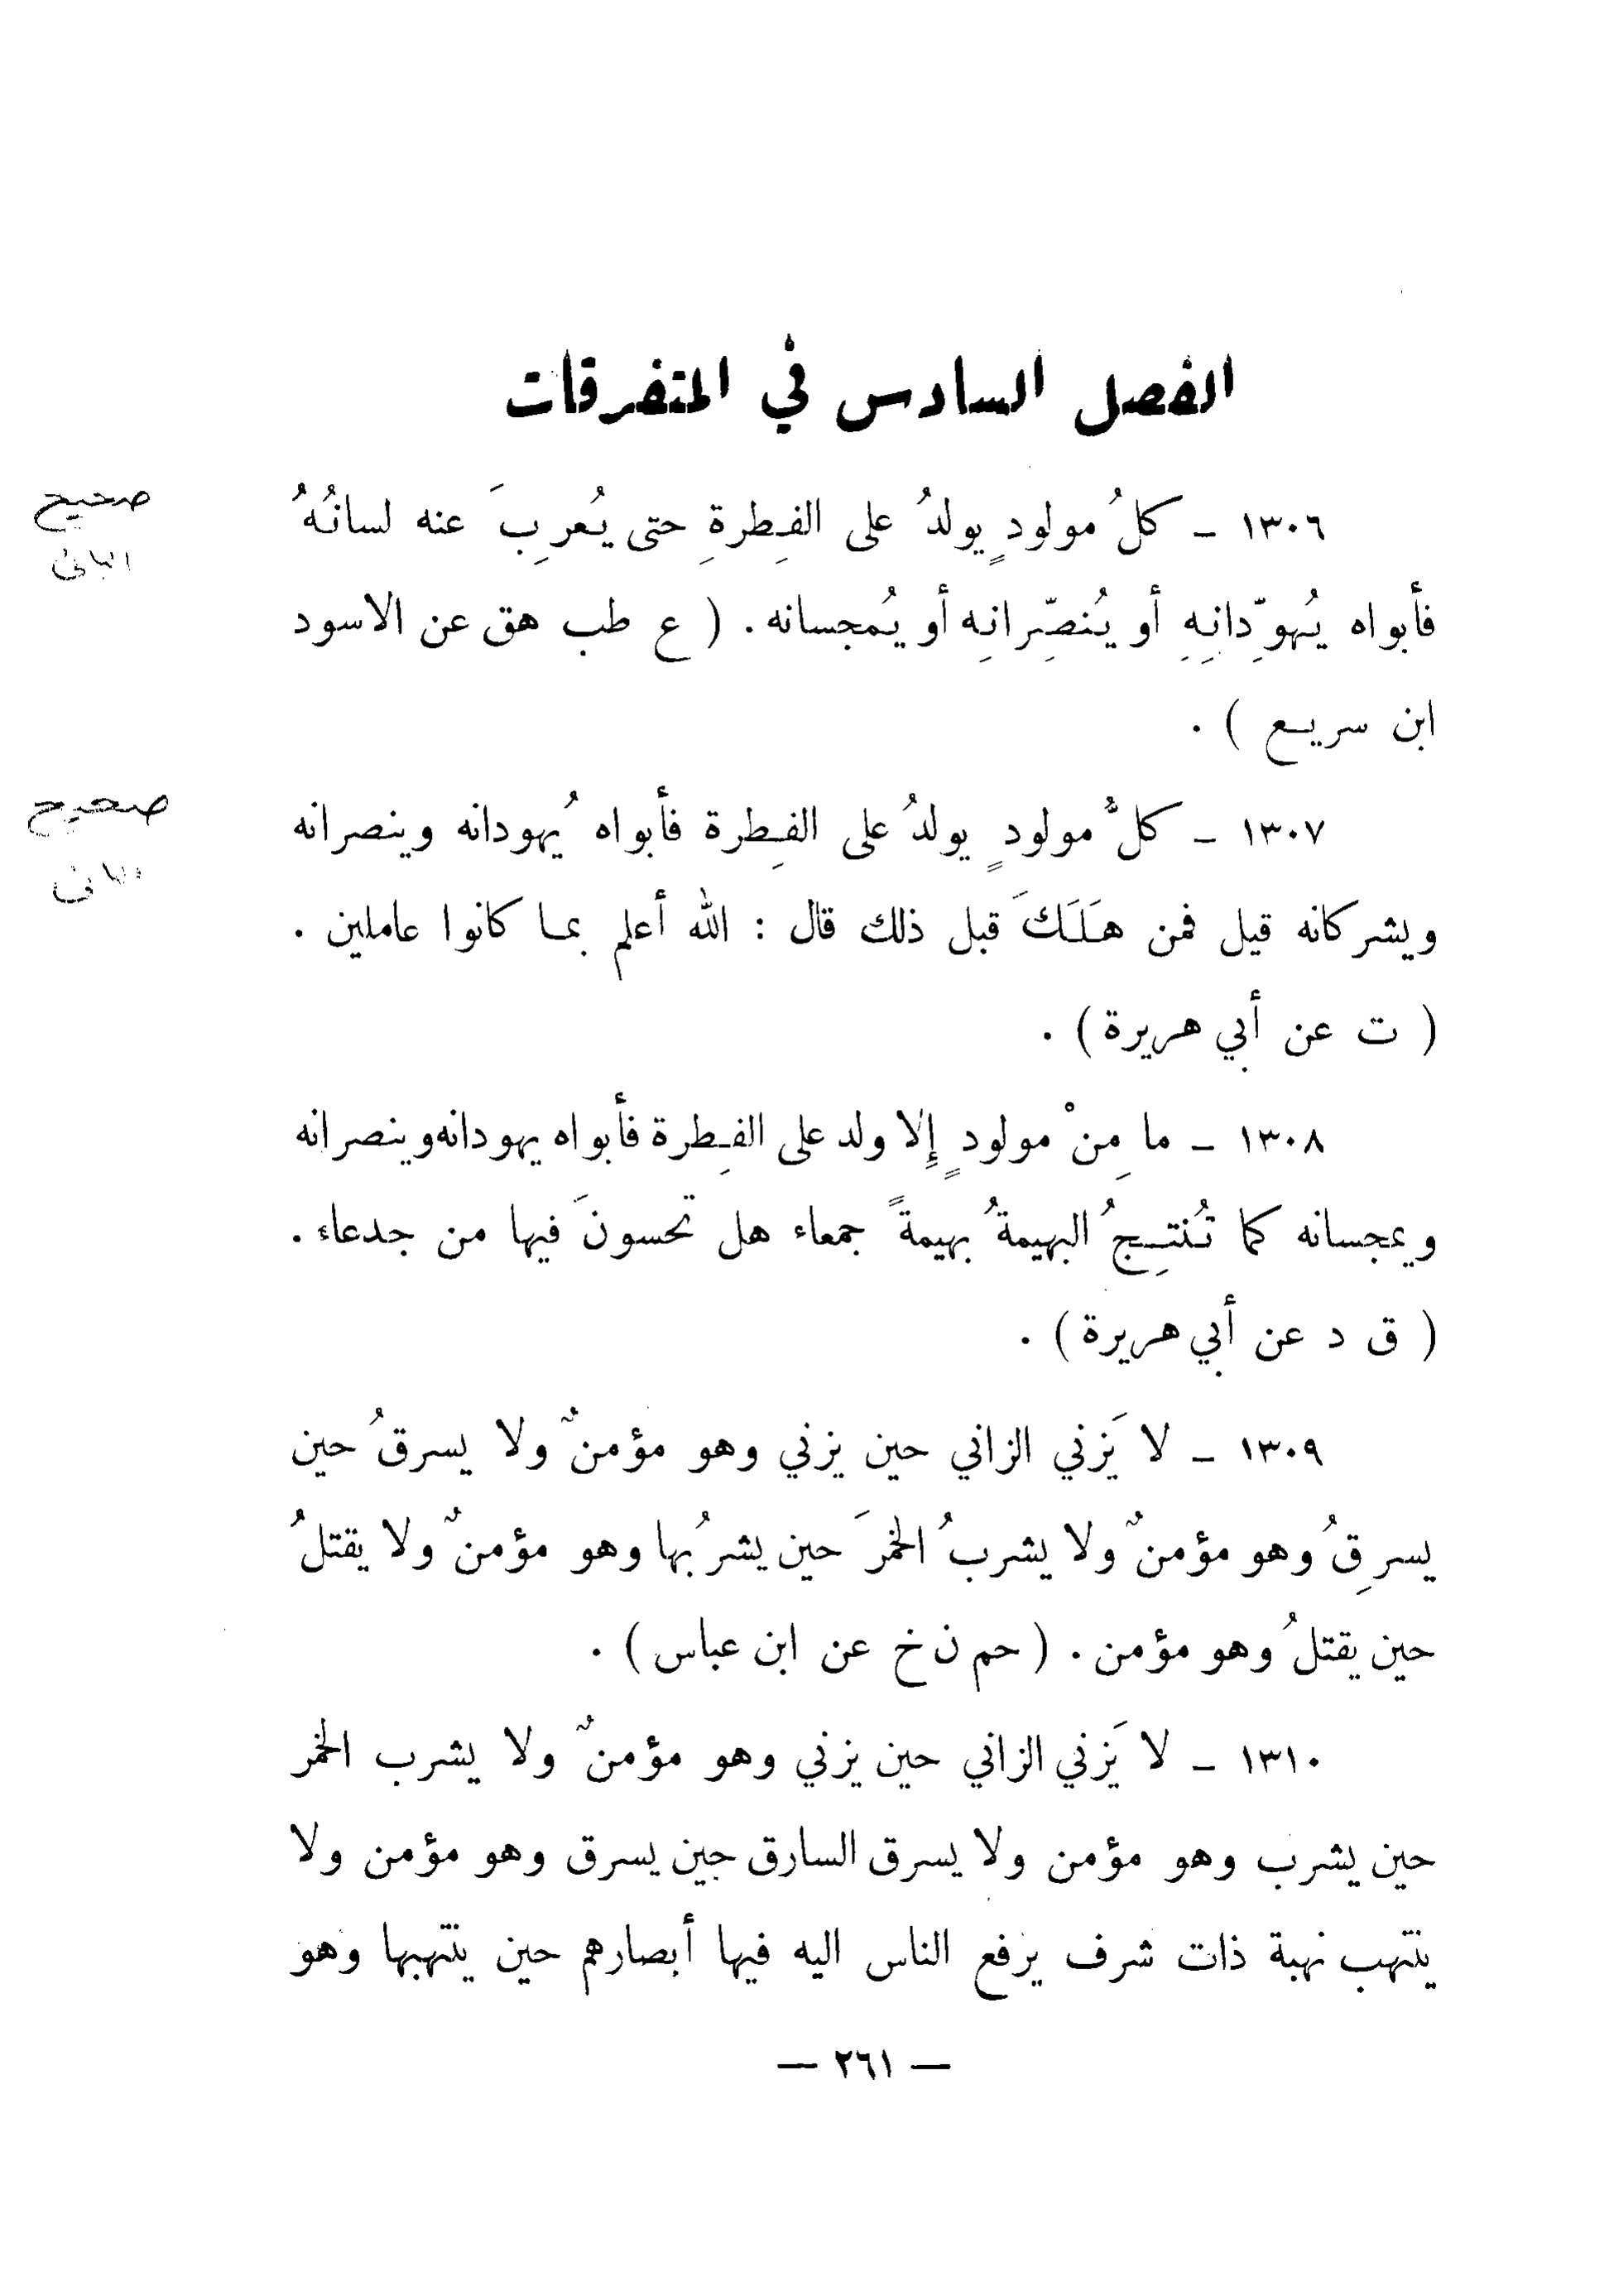 الفصل السادس في المتفرقات
١٣٠٦ - كلُ مولودٍ يولدُ على الفِطرةِ حتى يُعرِبَ عنه لسانُهُ
صحيح
البانى
فأبواه يُهوِّدانِهِ أو يُنصِّرانِه أو يُمجسانه . ( ع طب هق عن الاسود
ابن سريع ) .
١٣٠٧ - كلُّ مولودٍ يولدُ على الفِطرة فأبواه يُهودانه وينصرانه
صحيح
البانى
ويشركانه قيل فمن هَلَكَ قبل ذلك قال : الله أعلم بما كانوا عاملين .
( ت عن أبي هريرة ) .
١٣٠٨ - ما مِنْ مولودٍ إِلا ولد على الفِطرة فأبواه يهودانه وينصرانه
ويمجسانه كما تُنتِجُ البهيمةُ بهيمةً جمعاء هل تحسونَ فيها من جدعاء .
( ق د عن أبي هريرة ) .
١٣٠٩ - لا يَزني الزاني حين يزني وهو مؤمنٌ ولا يسرقُ حين
يسرِقُ وهو مؤمنٌ ولا يشربُ الخمرَ حين يشربُها وهو مؤمنٌ ولا يقتلُ
حين يقتلُ وهو مؤمن . ( حم ن خ عن ابن عباس ) .
١٣١٠ - لا يَزني الزاني حين يزني وهو مؤمنٌ ولا يشرب الخمر
حين يشرب وهو مؤمن ولا يسرق السارق حين يسرق وهو مؤمن ولا
ينتهب نهبة ذات شرف يرفع الناس اليه فيها أبصارهم حين ينتهبها وهو
— ٢٦١ —